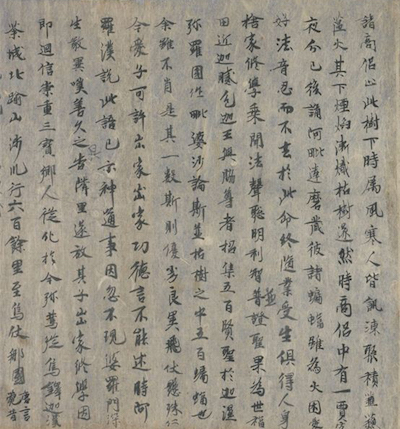 諸商侶止此樹下時属風寒人皆飢凍聚積樵蘇
蘊火其下煙焰漸熾枯樹遂然時商侶中有一賈客
夜分已後誦阿毗達磨藏彼諸蝙蝠雖為火困愛
好法音忍而不去於此命終隨業受生俱得人身
捨家修學乘聞法聲聡明利智並證聖果為世福
田近迦膩色迦王與脇尊者招集五百賢聖於迦濕
弥羅國作毗婆沙論斯並枯樹之中五百蝙蝠也
余雖不肖是其一數斯則優劣良異飛伏懸殊仁
今愛子可許出家出家功德言不能述時阿
羅漢說此語已示神通事因忽不現婆羅門深
生敬異嘆善久之具告隣里遂放其子出家修學因
即迴信崇重三寶鄉人從化於今弥篤從烏鐸迦漢
荼城北踰山涉川行六百餘里至烏仗那國唐言